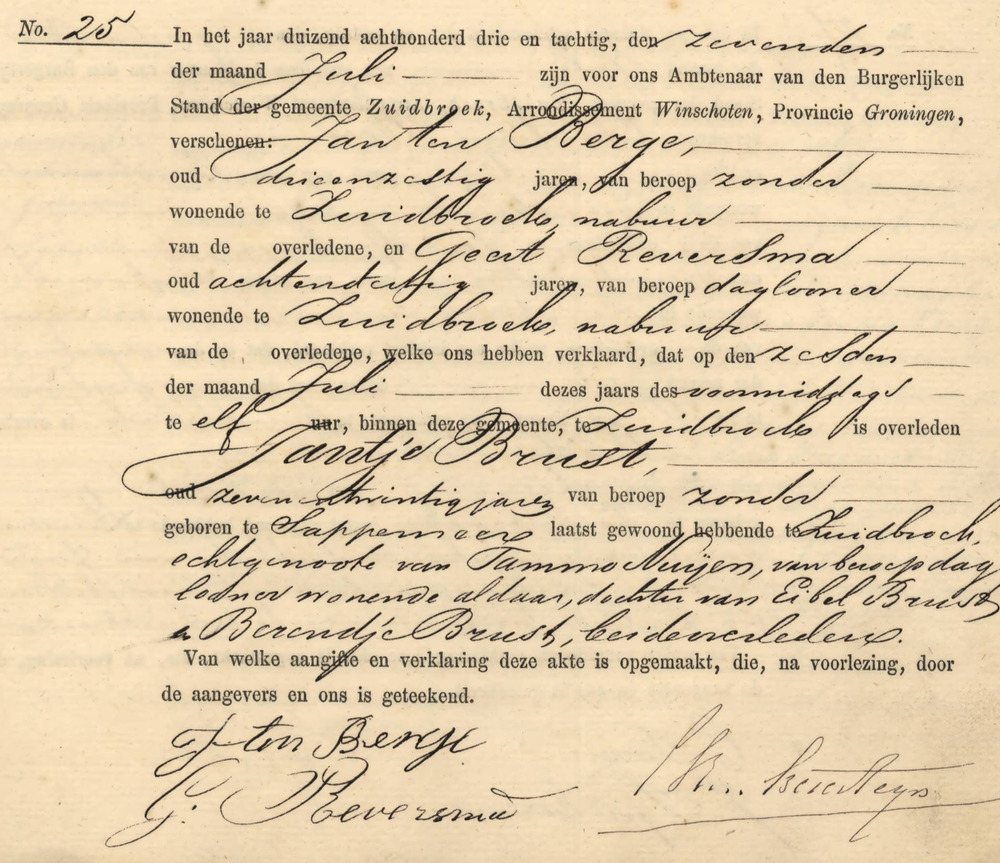 No. 25
In het jaar duizend achthonderd drie en tachtig, den zevenden
der maand Juli zijn voor ons Ambtenaar van den Burgerlijken
Stand der gemeente Zuidbroek, Arrondissement Winschoten, Provincie Groningen,
verschenen: Jan ten Berge,
oud drieenzestig jaren, van beroep zonder
wonende te Zuidbroek, nabuur
van de overledene, en Geert Reversma
oud achtendertig jaren, van beroep daglooner
wonende te Zuidbroek, nabuur
van de overledene, welke ons hebben verklaard, dat op den zesden
der maand Juli dezes jaars des voormiddags
te elf uur, binnen deze gemeente, te Zuidbroek is overleden
Jantje Brust,
oud zevenentwintig jaren van beroep zonder
geboren te Sappemeer laatst gewoond hebbende te Zuidbroek,
echtgenoote van Tammo Nuijen, van beroep dag
looner wonende aldaar, dochter van Eibel Brust
en Berendje Brust, beide overleden.
Van welke aangifte en verklaring deze akte is opgemaakt, die, na voorlezing, door
de aangevers en ons is geteekend.
J ten Berge
G. Reversma